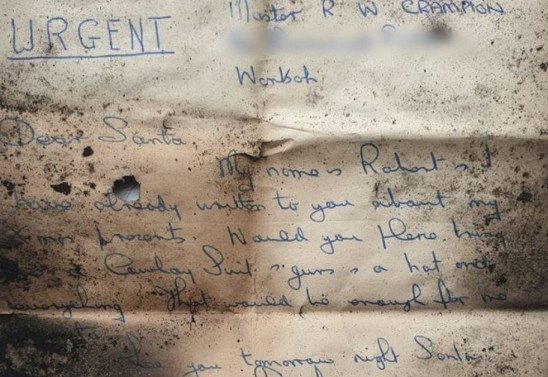 URGENT
Master R W CRAMPTON
Dear Santa
My name is Robert & I
have already written to you about my
X mas presents. Would you please bring
me a Cowboy Suit & guns & a hat and
everything That would be enough for me
See you tomorrow night Santa